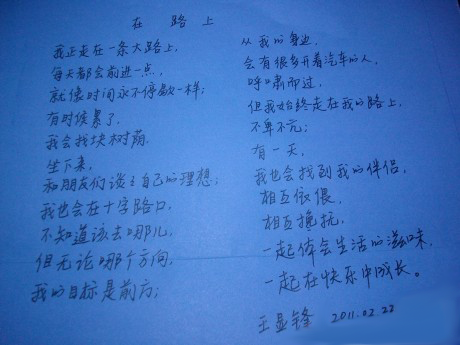 在路上
我正走在一条大路上,
每天都会前进一点,
就像时间永不停歇一样;
有时候累了,
我会找块树荫,
坐下来,
和朋友们谈谈自己的理想;
我也会在十字路口,
不知道该去哪儿,
但无论哪个方向,
我的目标是前方;
从我的身边,
会有很多开着汽车的人,
呼啸而过,
但我始终走在我的路上,
不卑不亢;
有一天,
我也会找到我的伴侣,
相互依偎,
相互搀扶,
一起体会生活的滋味,
一起在快乐中成长。
王显锋 2011.02.22